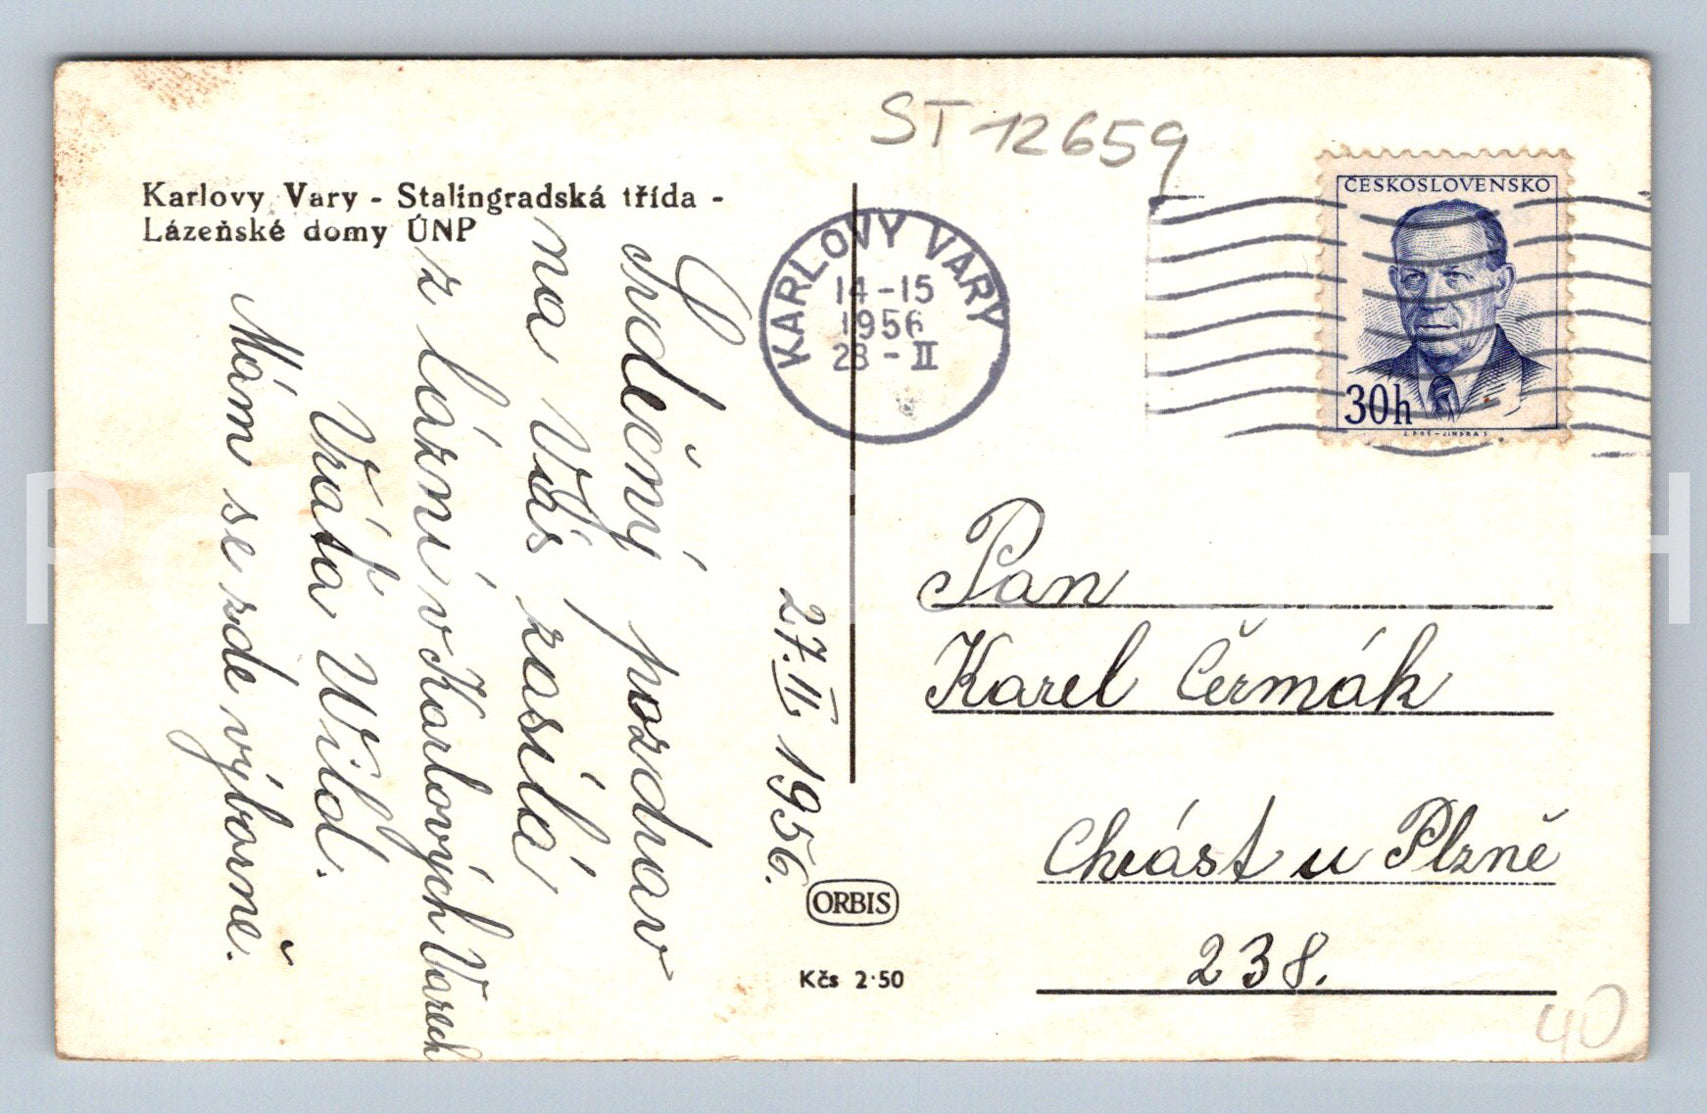 ST 12659
Karlovy Vary - Stalingradská třída -
Lázeňské domy ÚNP
KARLOVY VARY
14-15
1956
28-II
ČESKOSLOVENSKO
30h
27.II. 1956.
Srdečný pozdrav
na Vás zasílá
z lázní v Karlových Varech
Vráťa Wild.
Mám se zde výborně.
Pan
Karel Čermák
Chrást u Plzně
238.
ORBIS
Kčs 2·50
40